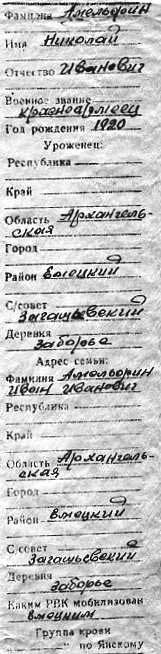 Фамилия Амельфрин
Имя Николай
Отчество Иванович
Военное звание
красноармеец
Год рождения 1920
Уроженец:
Республика
Край
Область Архангель-
ская
Город
Район Емецкий
С/совет
Загашьевский
Деревня
Заборье
Адрес семьи:
Фамилия
Иван Иванович
Республика
Край
Область Архангель-
ская
Город
Район Емецкий
С/совет
Загашьевский
Деревня
Заборье
Каким РВК мобилизован
Емецким
Группа крови
по Янскому